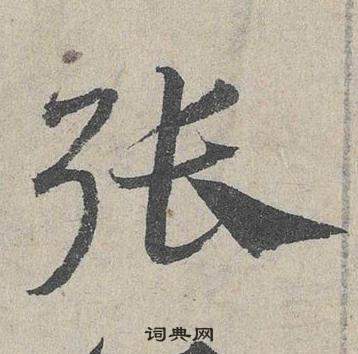 张
词典网